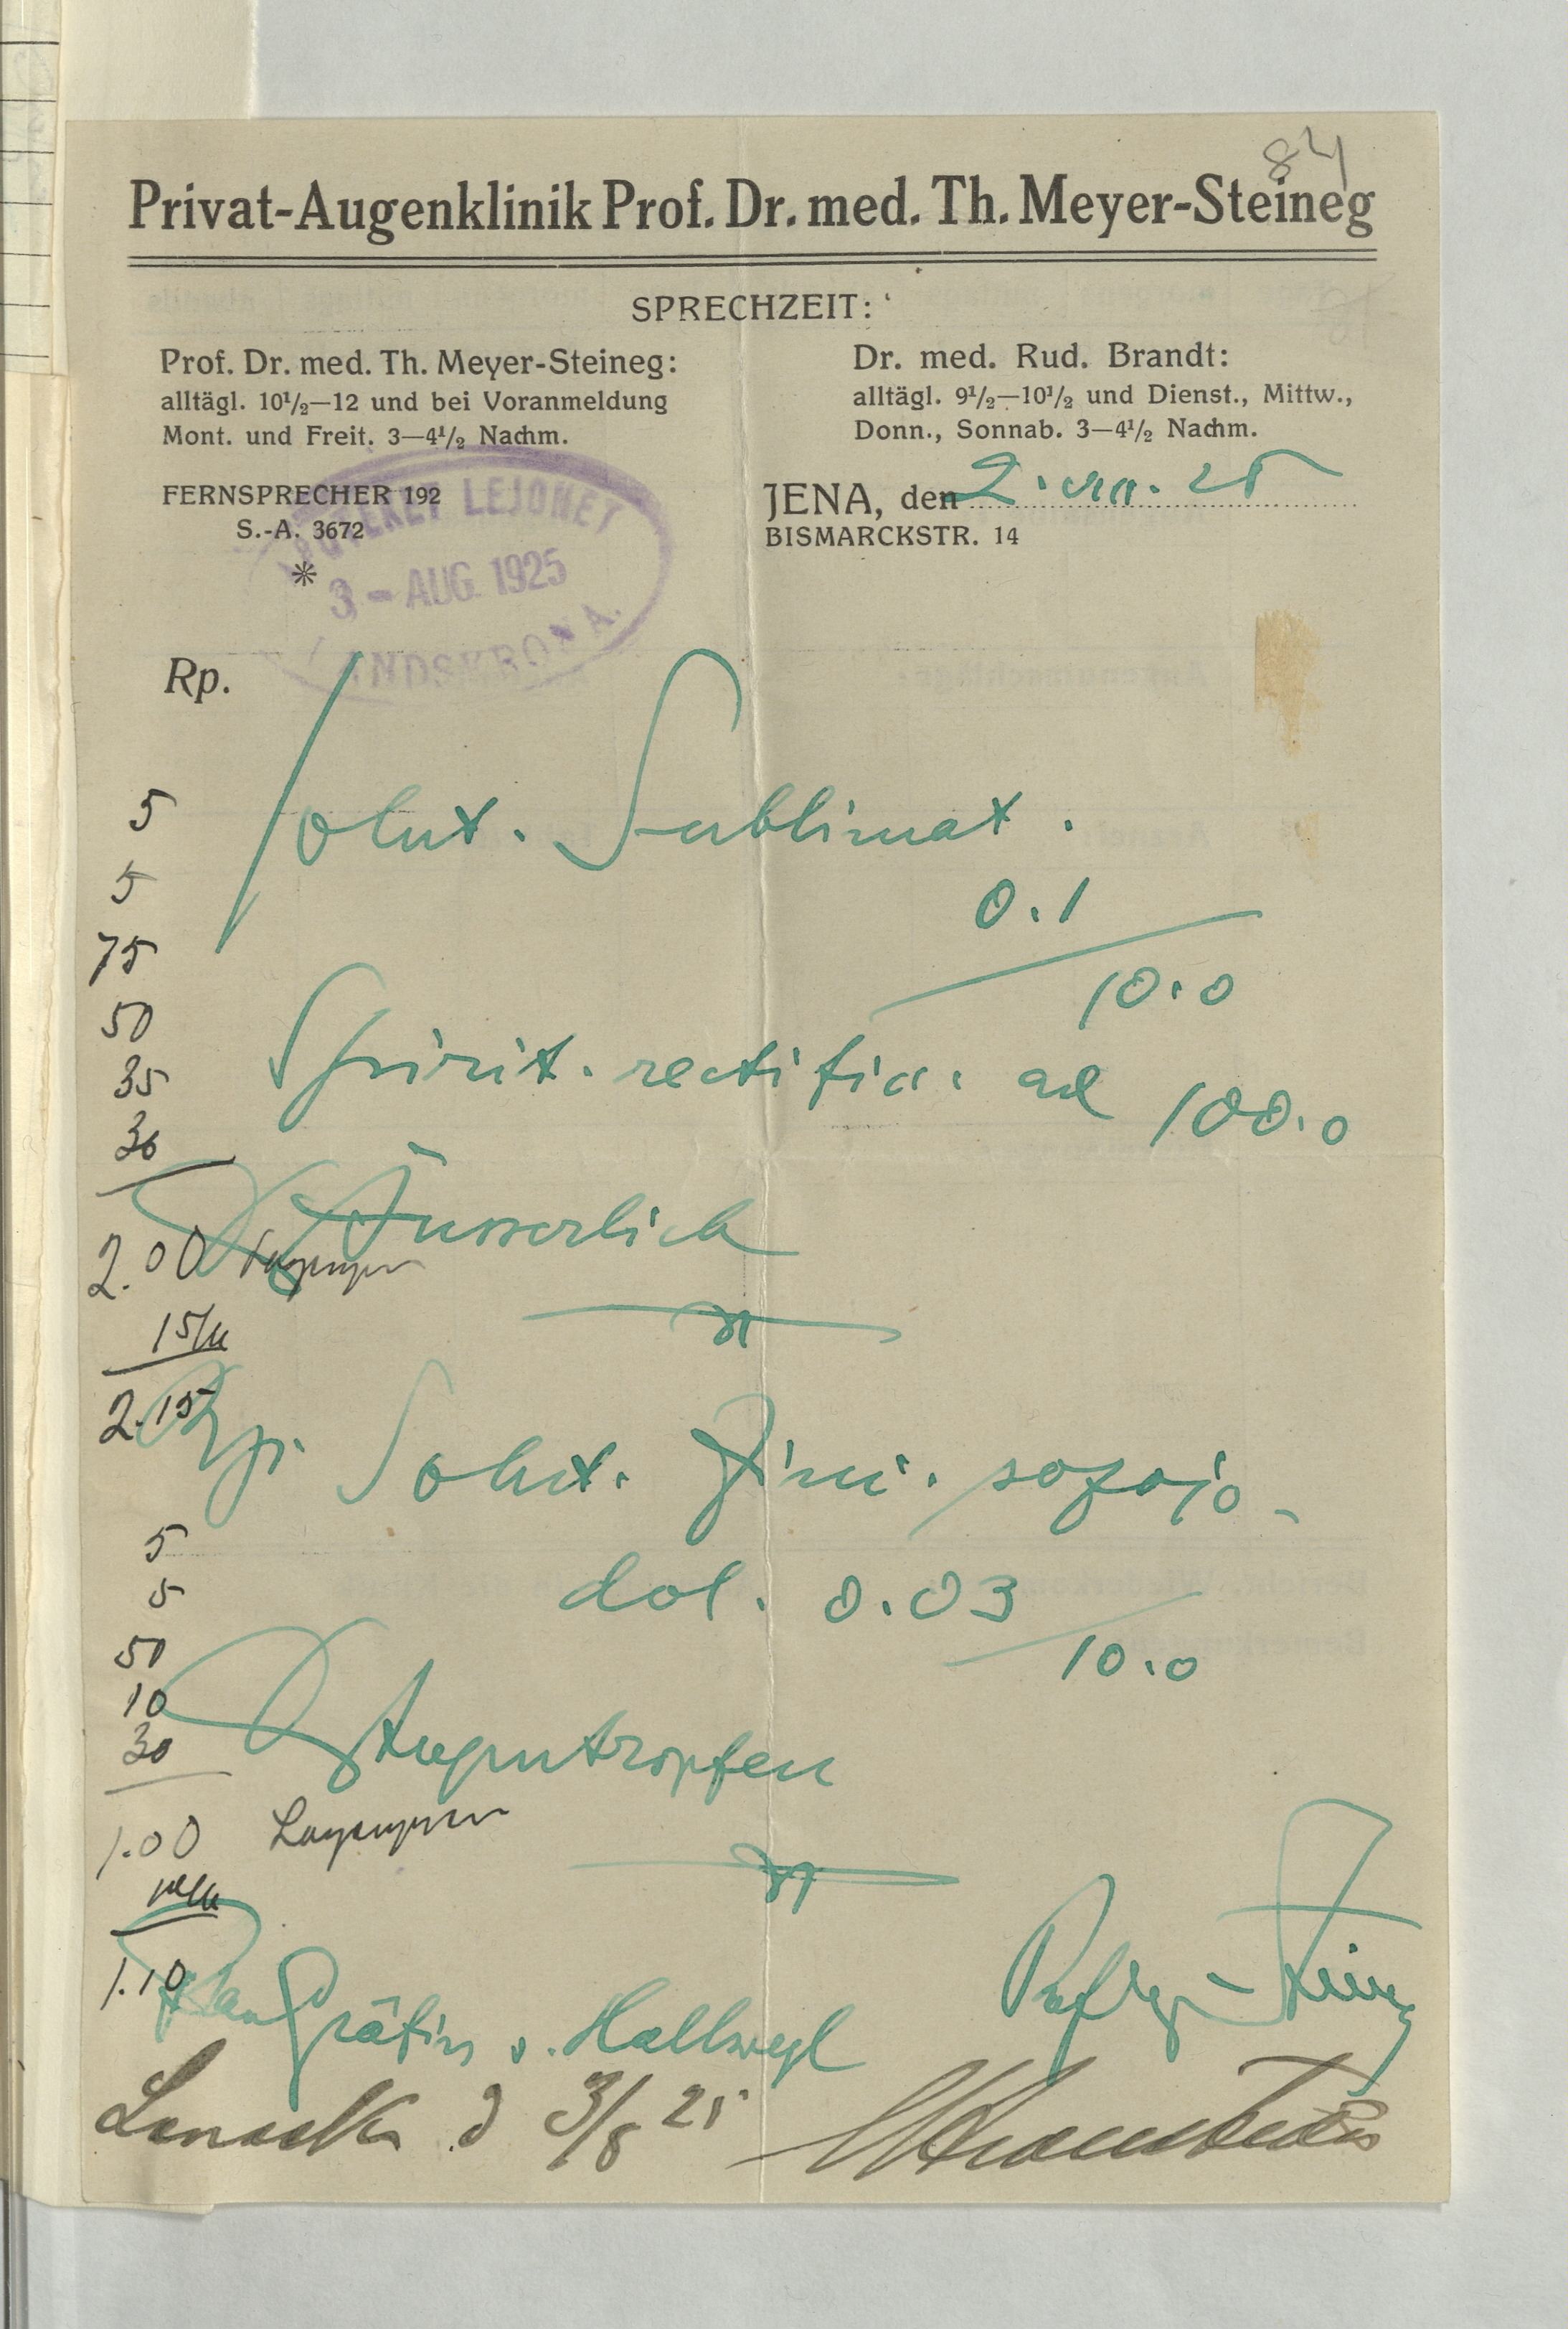 84
Privat-Augenklinik Prof. Dr. med. Th. Meyer-Steineg
SPRECHZEIT:
Prof. Dr. med. Th. Meyer-Steineg:
alltägl. 10½—12 und bei Voranmeldung
Mont. und Freit. 3—4½ Nachm.
Dr. med. Rud. Brandt:
alltägl. 9½—10½ und Dienst., Mittw.,
Donn., Sonnab. 3—4½ Nachm.
FERNSPRECHER 192
S.-A. 3672
*
JENA, den 2. VIII. 25
BISMARCKSTR. 14
APOTEKET LEJONET
3 - AUG. 1925
LANDSKRONA.
Rp.
5
Solut. Sublimat.
5
0.1
75
10.0
50
35
Spirit. rectific. ad 100.0
30
Äusserlich
2.00
15
2.15
Rp. Solut. Zinc. sozojo-
5
dol. 0.03
5
10.0
50
10
30
Augentropfen
1.00
1.10
Frau Gräfin v. Hallwyl
Prof Meyer-Steineg
3/8 25